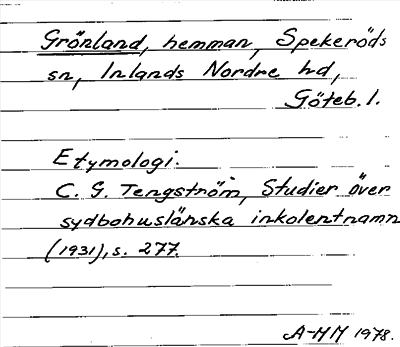 Grönland, hemman, Spekeröds
sn, Inlands Nordre hd,
Göteb. l.
Etymologi:
C. G. Tengström, Studier över
sydbohuslänska inkolentnamn
(1931), s. 277.
A-MM 1978.